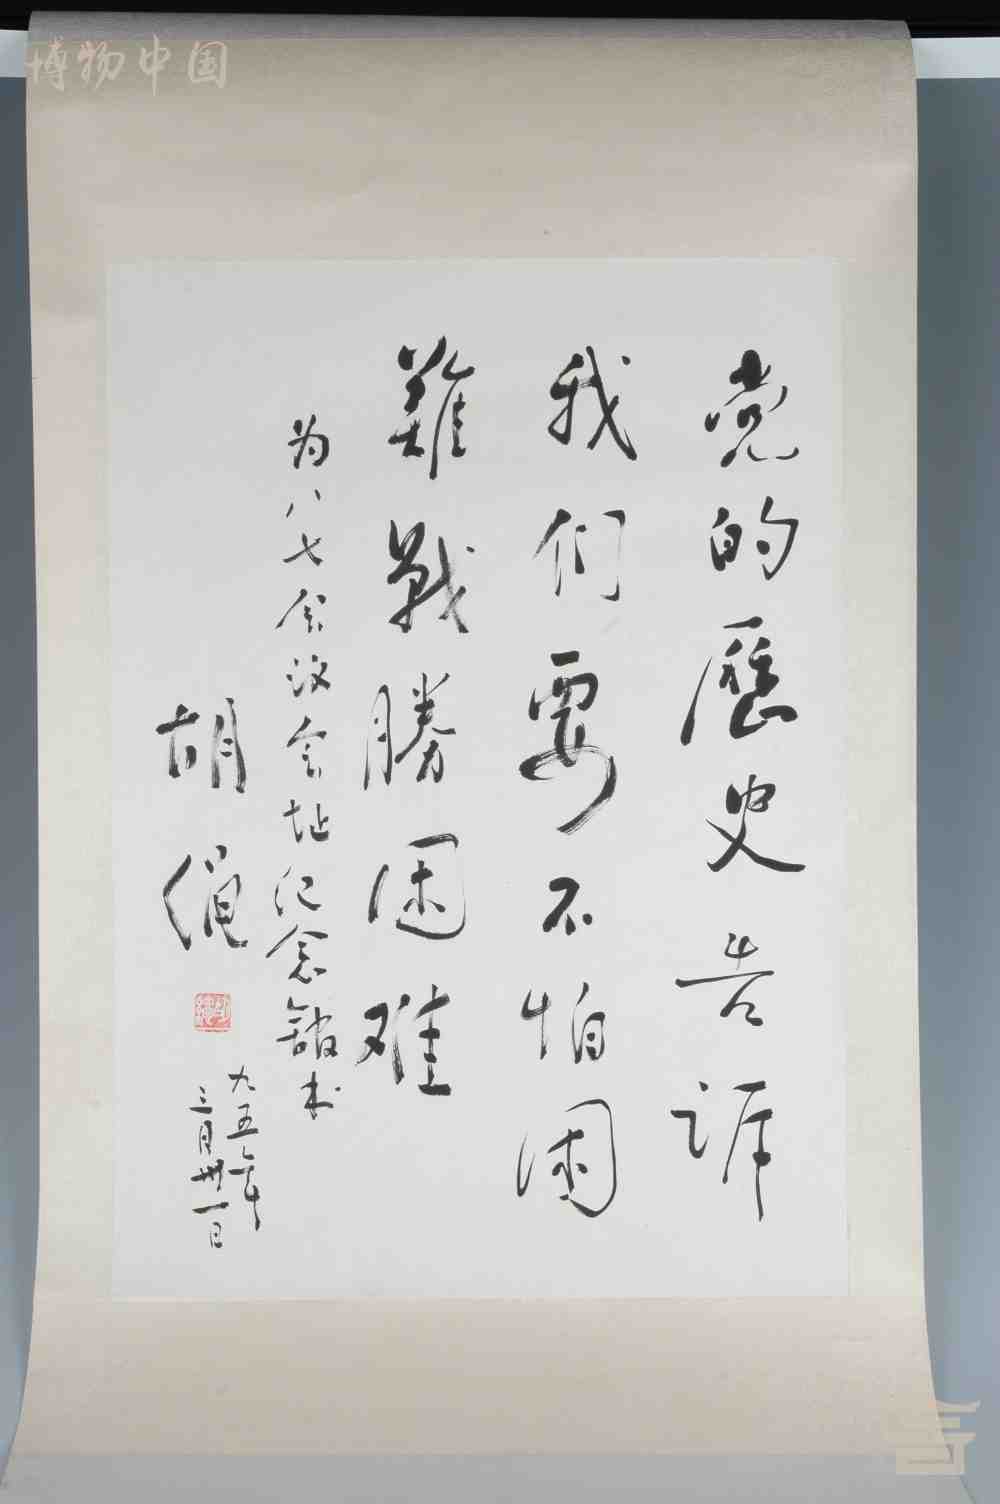 博物中国
党的歷史告诉
我们要不怕困
難戰勝困难
为八七会议会址纪念館书
胡绳
九五年
三月卅一日